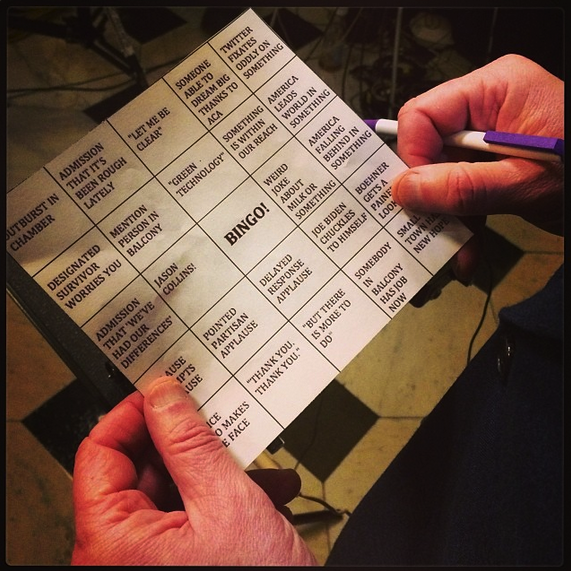 OUTBURST IN
CHAMBER
ADMISSION
THAT IT'S
BEEN ROUGH
LATELY
"LET ME BE
CLEAR"
SOMEONE
ABLE TO
DREAM BIG
THANKS TO
ACA
TWITTER
FIXATES
ODDLY ON
SOMETHING
DESIGNATED
SURVIVOR
WORRIES YOU
MENTION
PERSON IN
BALCONY
"GREEN
TECHNOLOGY"
SOMETHING
IS WITHIN
OUR REACH
AMERICA
LEADS
WORLD IN
SOMETHING
ADMISSION
THAT "WE'VE
HAD OUR
DIFFERENCES"
JASON
COLLINS!
BINGO!
WEIRD
JOKE
ABOUT
MILK OR
SOMETHING
AMERICA
FALLING
BEHIND IN
SOMETHING
POINTED
PARTISAN
APPLAUSE
DELAYED
RESPONSE
APPLAUSE
JOE BIDEN
CHUCKLES
TO HIMSELF
BOEHNER
GETS A
MAKES
FACE
"THANK YOU,
THANK YOU."
"BUT THERE
IS MORE TO
DO"
SOMEBODY
IN
BALCONY
HAS JOB
NOW
SMALL
TOWN
NEW